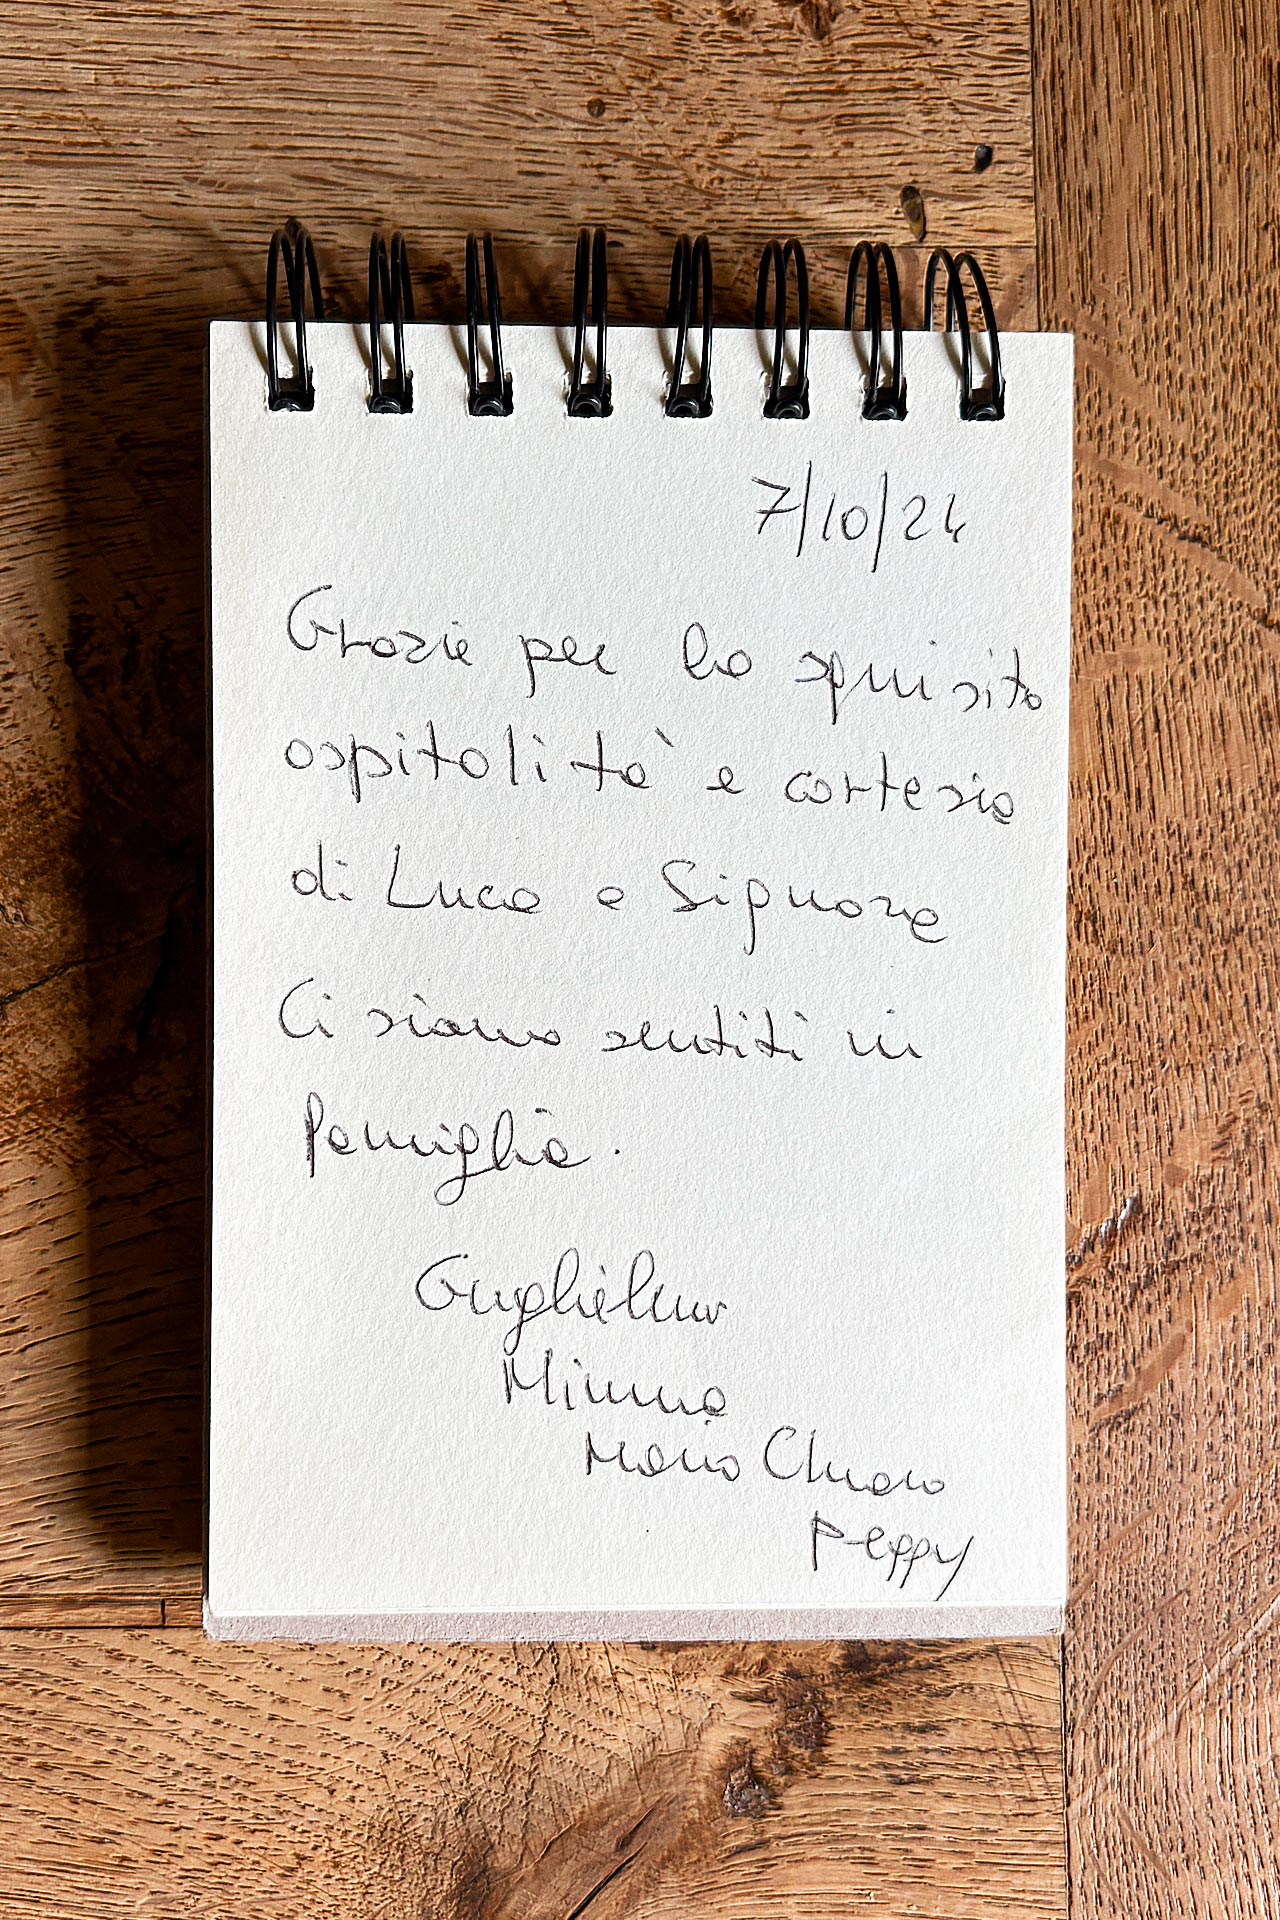 7/10/24
Grazie per la squisita
ospitalità e cortesia
di Luca e Signora
Ci siamo sentiti in
famiglia.
Guglielmo
Mimma
Maria Chiara
Peppy